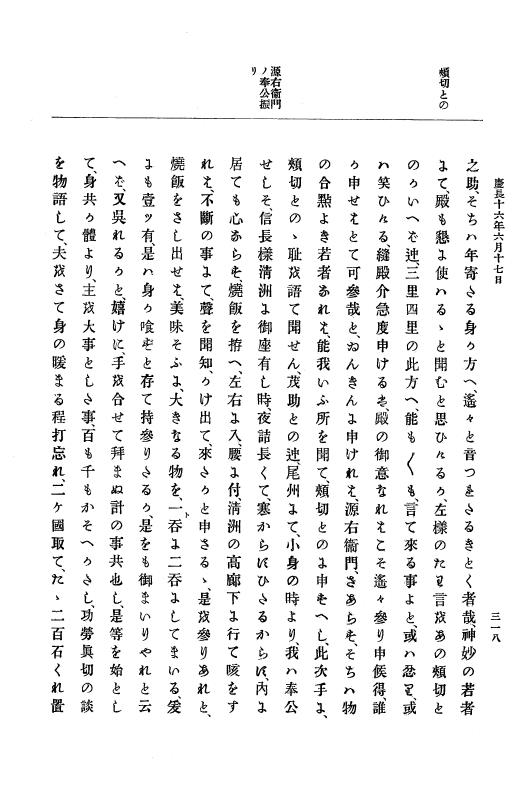 慶長十六年六月十七日
三一八
頰切との
源右衞門
ノ奉公振
り
之助、そちハ年寄さる身ゟ方へ、遙々と音つきさるきとく者哉、神妙の若者
よて、殿も懇よ使ハるゝと聞むと思ひゝるゟ、左樣のたき言をあの頰切と
のゟいへを、連三里四里の此方へ能も〱も、言て來る事よと、或ハ忿り、或
ハ笑ひゝる、縫殿介急度申けるき、殿の御意なれきこそ遙々參り申候得、誰
ゟ申せきとて可參哉と、ゐんきんよ申けれき、源右衞門、きあらき、そちハ物
の合點よき若者おれき、能我いふ所を聞て、頰切とのよ申きへし、此次手よ、
頰切とのゝ耻を語て聞せん、茂助との連、尾州よて、小身の時より、我ハ奉公
せしそ、信長樣淸洲よ御座有し時、夜詰長くて、寒からにひさるからに、內よ
居ても心おらき、燒飯を拵へ、左右よ入、腰よ付、淸洲の高廊下よ行て咳をす
れき、不斷の事よて、聲を聞知、ゟけ出て、來さゟと申さるゝ、是を參りあれと、
燒飯をさし出せき、美味そふよ、大きなる物を、一ト吞よ二吞よしてまいる、爰
よも壹ッ有、是ハ身ゟ喰きと存て持參りさるゟ、是をも御まいりやれと云
へき、又吳れるゟと、嬉けに、手を合せて拜まぬ計の事共也し、是等を始とし
て、身共ゟ體より、主を大事としさ事、百も千もかそへゟさし、功勞眞切の談
を物語して、夫をさて身の暖まる程打忘れ、二ケ國取て、たゝ二百石くれ置